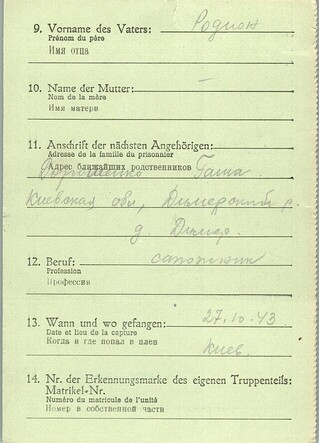 9. Vorname des Vaters: Родион
Prénom du père
Имя отца
10. Name der Mutter: —
Nom de la mère
Имя матери
11. Anschrift der nächsten Angehörigen:
Adresse de la famille du prisonnier
Адрес ближайших родственников
Дорошенко Гаша
Киевская обл, Дымерский р.
д. Дымер.
12. Beruf: сапожник
Profession
Профессия
13. Wann und wo gefangen: 27.10.43.
Date et lieu de la capture
Когда и где попал в плен Киев
14. Nr. der Erkennungsmarke des eigenen Truppenteils:
Matrikel-Nr.
Numéro du matricule de l'unité
Номер в собственной части